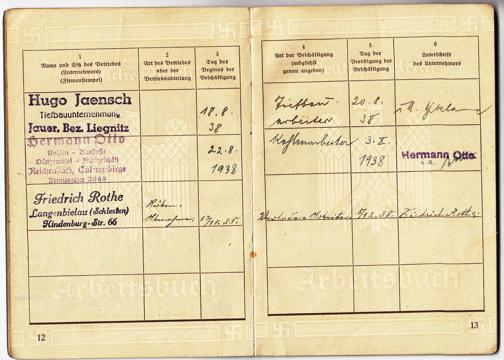 1
Name und Sitz des Betriebes
(Unternehmers)
(Firmenstempel)
2
Art des Betriebes
oder der
Betriebsabteilung
3
Tag des
Beginns der
Beschäftigung
4
Art der Beschäftigung
(möglichst
genau angeben)
5
Tag der
Beendigung der
Beschäftigung
6
Unterschrift
des Unternehmers
Hugo Jaensch
Tiefbauunternehmung
Jauer, Bez. Liegnitz
18.8.
38
Tiefbau
arbeiter
20.8.
38
Hermann Otto
Kohlen - Baustoffe
Düngemittel - Fuhrgeschäft
Reichenbach, Eulengebirge
Fernsprecher 2069
22.8.
1938
3.X.
1938
Hermann Otto
Friedrich Rothe
Langenbielau (Schlesien)
Hindenburg-Str. 66
Friedrich Rothe
Arbeitsbuch
Arbeitsbuch
12
13